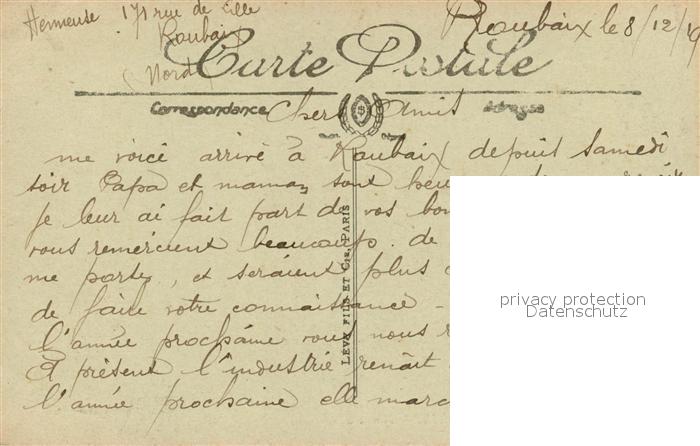 Hermeuse 171 rue de Lille Roubaix le 8/12/19
Roubaix
(Nord)
Carte Postale
Correspondance Adresse
Chers Amis
me voici arrivé à Roubaix depuis samedi
soir Papa et maman sont
je leur ai fait part de vos
vous remercient beaucoup. de
me portez, et seraient plus
de faire votre connaissance -
l'année prochaine vous nous
A présent l'industrie renait
l'année prochaine elle
LEVY FILS ET CIE, PARIS
privacy protection
Datenschutz